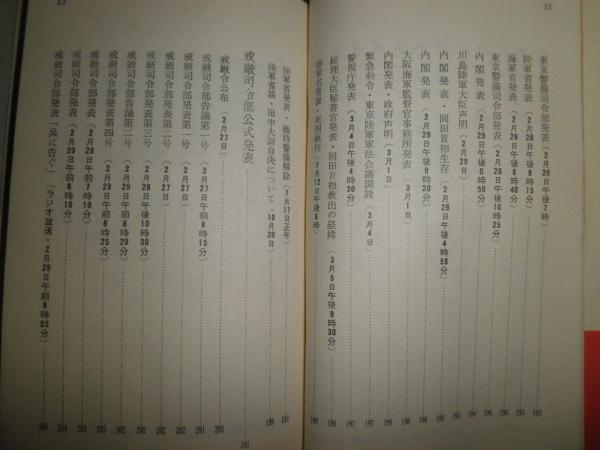 12
東京警備司令部発表（2月26日午後7時）……192
陸軍省発表（2月26日午後8時15分）……193
海軍省発表（2月26日午後8時40分）……194
東京警備司令部発表（2月26日午後10時25分）……194
内閣発表（2月29日午後0時50分）……194
川島陸軍大臣声明（2月29日）……195
内閣発表・岡田首相生存（2月29日午後4時58分）……195
内閣発表（2月29日午後9時20分）……196
大阪海軍監督官事務所発表（3月1日）……196
内閣発表・政府声明（3月1日）……196
緊急勅令・東京陸軍軍法会議開設（3月4日）……197
警視庁発表（3月4日午後4時30分）……197
総理大臣秘書官発表・岡田首相救出の経緯（3月5日午後9時30分）……198
陸軍省発表・死刑執行（7月12日午後6時）……199
13
陸軍省発表・戦時警備解除（7月17日正午）……199
陸軍省談・田中大尉自決について（10月20日）……199
戒厳司令部公式発表……201
戒厳令公布（2月27日）……201
戒厳司令部告諭第一号（2月27日午前8時15分）……201
戒厳司令部発表第一号（2月27日）……202
戒厳司令部発表第二号（2月27日）……202
戒厳司令部発表第三号（2月28日午後10時30分）……202
戒厳司令部告諭第二号（2月29日午前6時20分）……202
戒厳司令部発表第四号（2月29日午前6時25分）……203
戒厳司令部発表（2月29日午前7時10分）……203
戒厳司令部発表（2月29日午前8時10分）……204
戒厳司令部発表「兵に告ぐ」（ラジオ放送・2月29日午前8時55分）……204